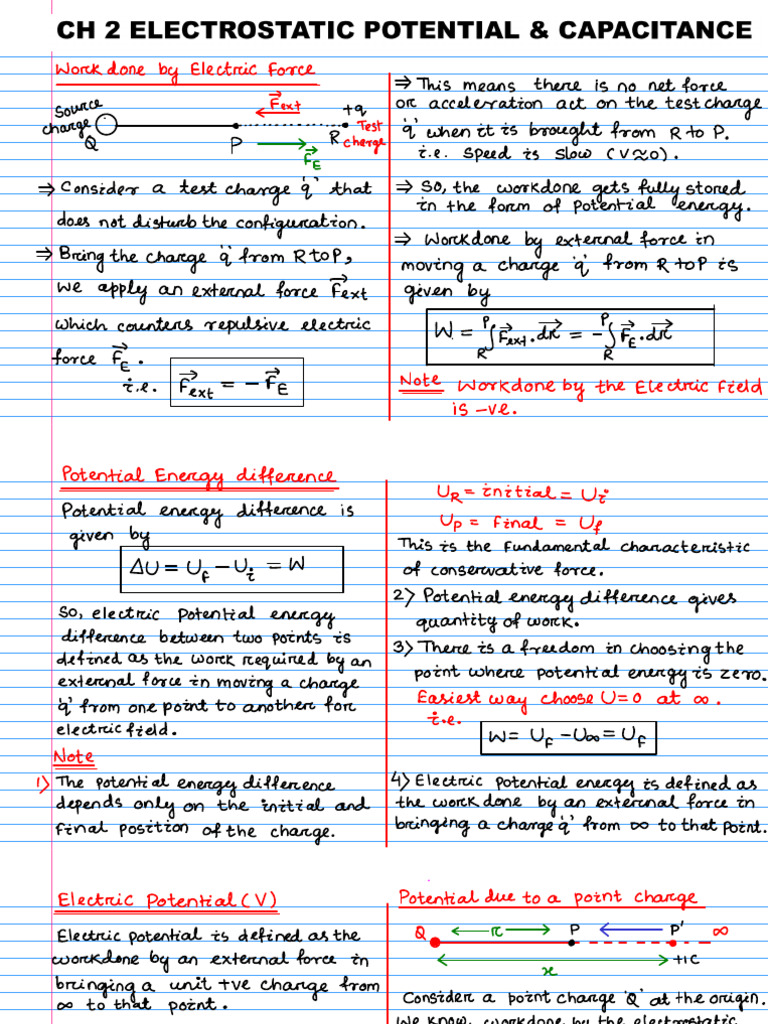 CH 2 ELECTROSTATIC POTENTIAL & CAPACITANCE
Work done by Electric Force
Source
charge
Q
P
R
+q
Test
charge
F⃗ext
F⃗E
⇒ Consider a test charge 'q' that
does not disturb the configuration.
⇒ Bring the charge 'q' from R to P,
we apply an external force F⃗ext
which counters repulsive electric
force F⃗E.
i.e. F⃗ext = -F⃗E
⇒ This means there is no net force
or acceleration act on the test charge
'q' when it is brought from R to P.
i.e. speed is slow (V≈0).
⇒ So, the workdone gets fully stored
in the form of potential energy.
⇒ Workdone by external force in
moving a charge 'q' from R to P is
given by
W = ∫_R^P F⃗ext.dr⃗ = -∫_R^P F⃗E.dr⃗
Note Workdone by the Electric field
is -ve.
Potential Energy difference
Potential energy difference is
given by
ΔU = Uf - Ui = W
So, electric potential energy
difference between two points is
defined as the work required by an
external force in moving a charge
'q' from one point to another for
electric field.
Note
1) The potential energy difference
depends only on the initial and
final position of the charge.
UR = initial = Ui
UP = Final = Uf
This is the Fundamental characteristic
of conservative force.
2) Potential energy difference gives
quantity of work.
3) There is a freedom in choosing the
point where potential energy is zero.
Easiest way choose U=0 at ∞.
i.e.
W = Uf - U∞ = Uf
4) Electric potential energy is defined as
the work done by an external force in
bringing a charge 'q' from ∞ to that point.
Electric Potential (V)
Electric potential is defined as the
workdone by an external force in
bringing a unit +ve charge from
∞ to that point.
Potential due to a point charge
Q r P P' ∞
x +1C
Consider a point charge 'Q' at the origin.
We know, workdone by the electrostatic